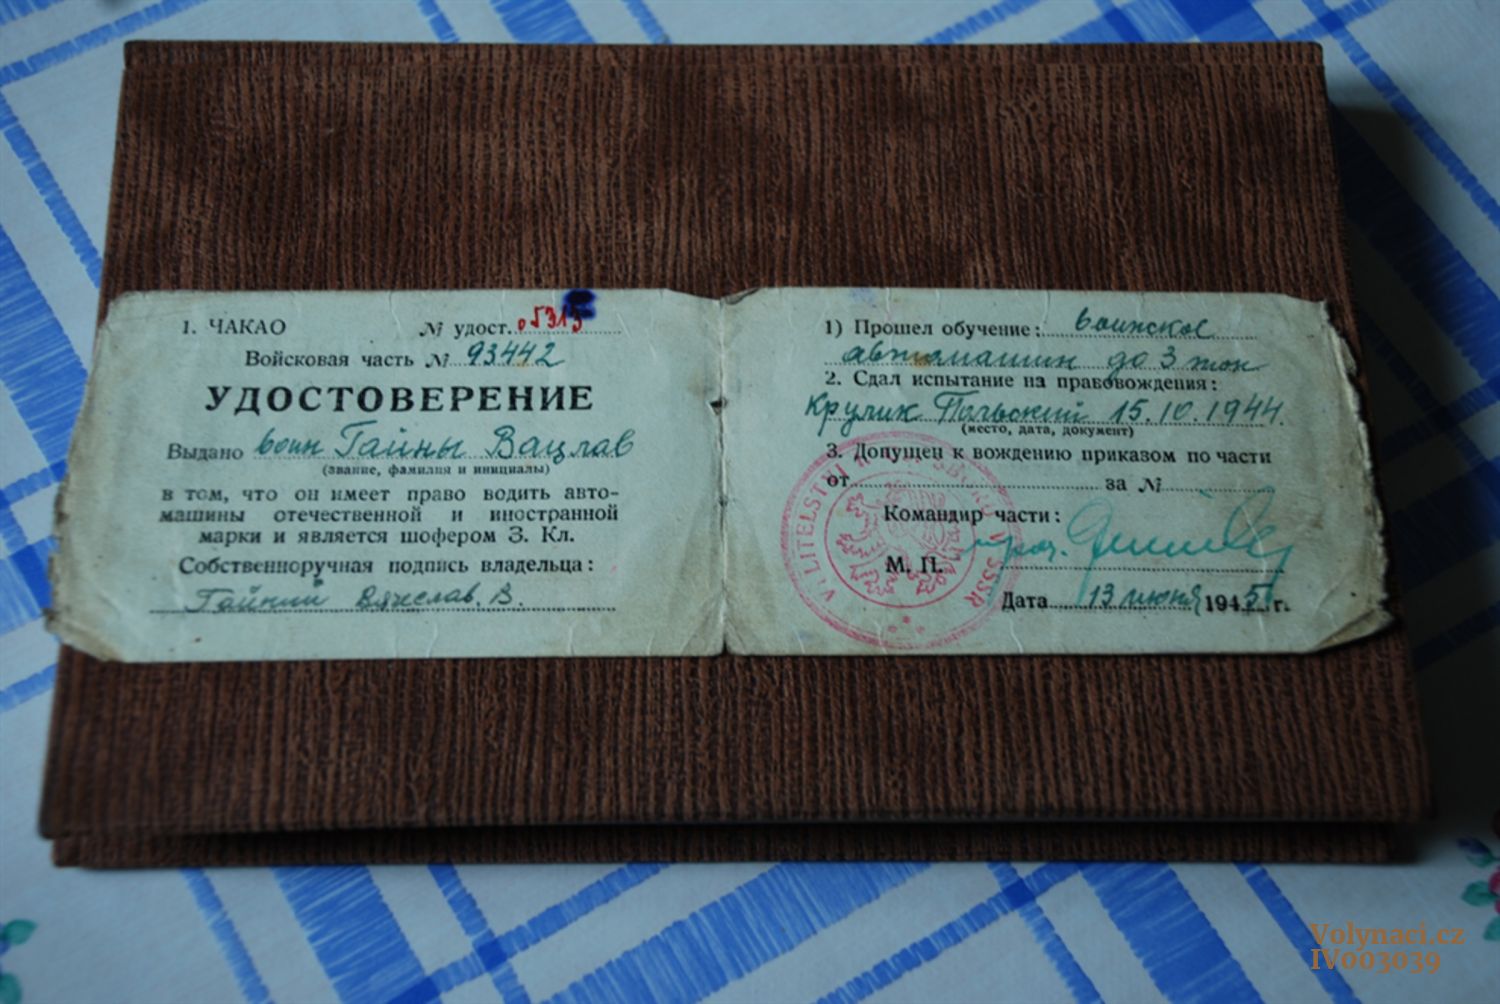 1. ЧАКАО № удост. 05315
Войсковая часть № 93442
УДОСТОВЕРЕНИЕ
Выдано воин Гайны Вацлав
(звание, фамилия и инициалы)
в том, что он имеет право водить авто-
машины отечественной и иностранной
марки и является шофером 3. Кл.
Собственноручная подпись владельца:
Гайний Вячеслав. В.
1) Прошел обучение: воинское
автомашин до 3 тон
2. Сдал испытание на правовождения:
Крулик Польский 15.10.1944.
(место, дата, документ)
3. Допущен к вождению приказом по части
от за №
Командир части:
М. П.
VELITELSTVÍ SBORU SSSR
Дата 13 июня 1945 г.
Volynaci.cz
IV003039